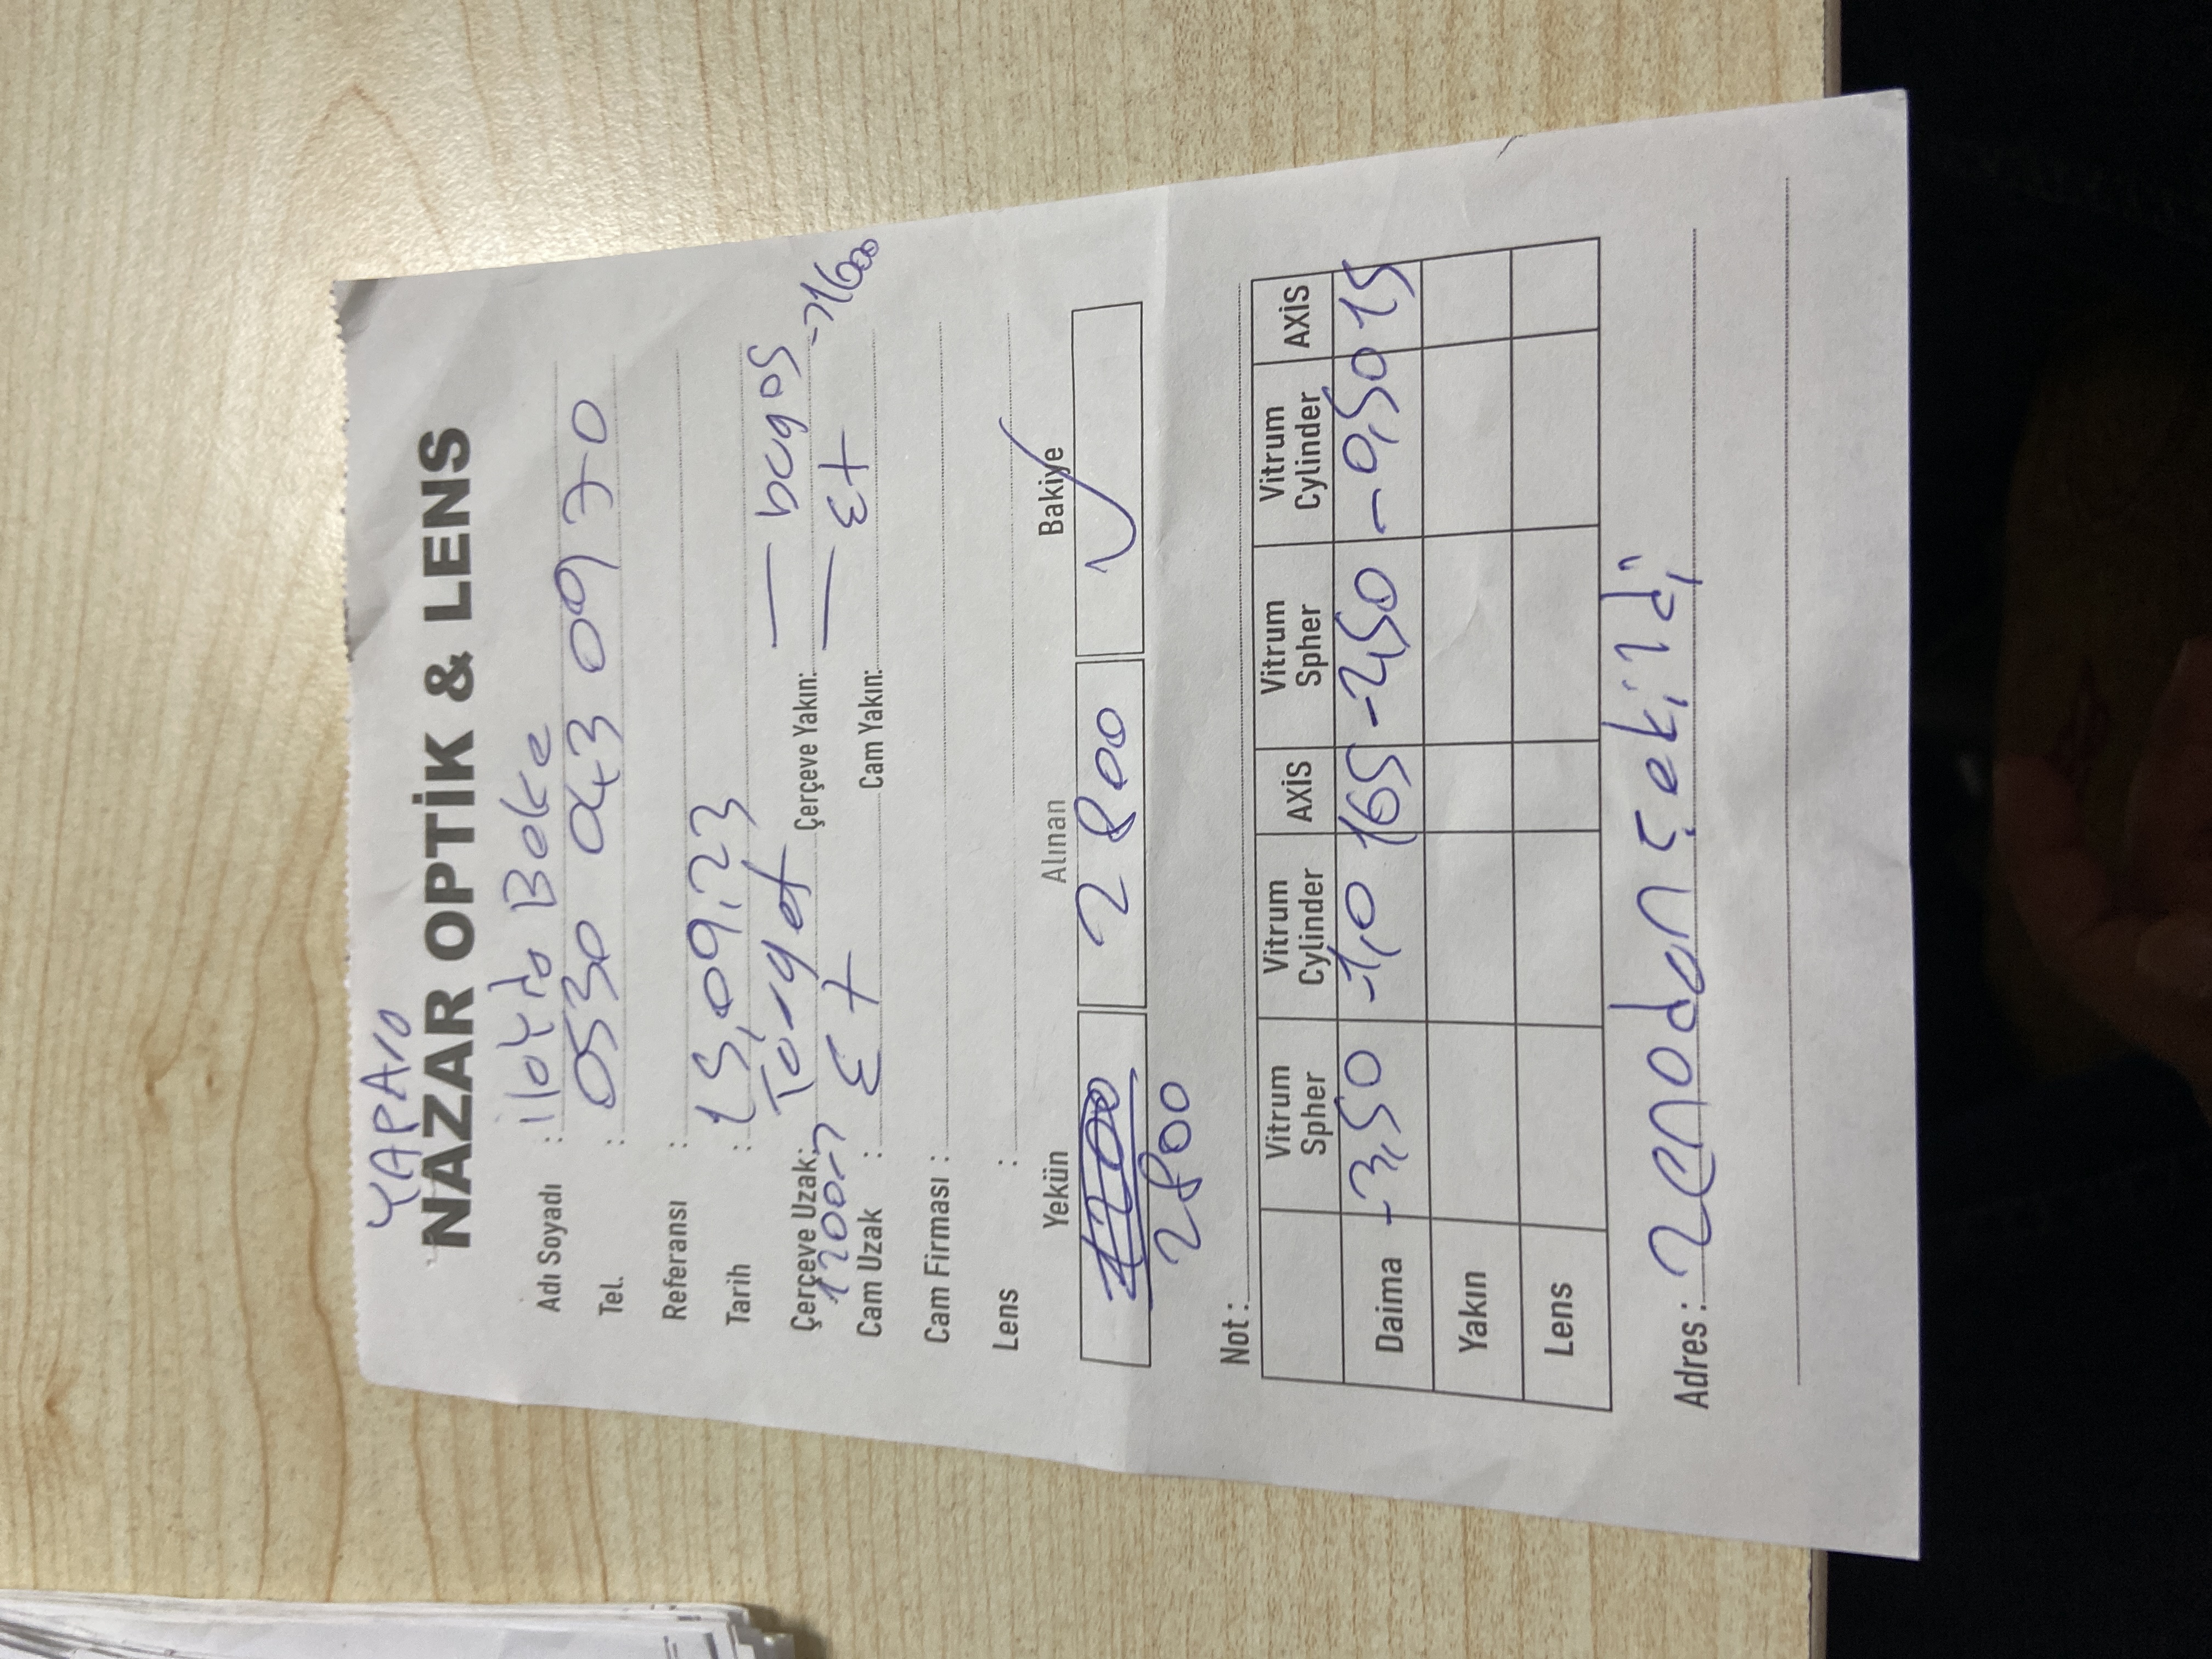 NAZAR OPTİK & LENS
Adı Soyadı : ilayda Beke
Tel. : 0530 043 09 70
Referansı :
Tarih : 15,09,23
Çerçeve Uzak: Target Çerçeve Yakın: — bugos
1200-> ->1600
Cam Uzak : Et Cam Yakın: — Et
Cam Firması :
Lens :
Yekün Alınan Bakiye
1200 2800 ✓
2800
Not :
Vitrum Spher Vitrum Cylinder AXİS Vitrum Spher Vitrum Cylinder AXİS
Daima -3,50 -1,0 165 -2,50 -0,50 15
Yakın
Lens
Adres : zenodan çekildi